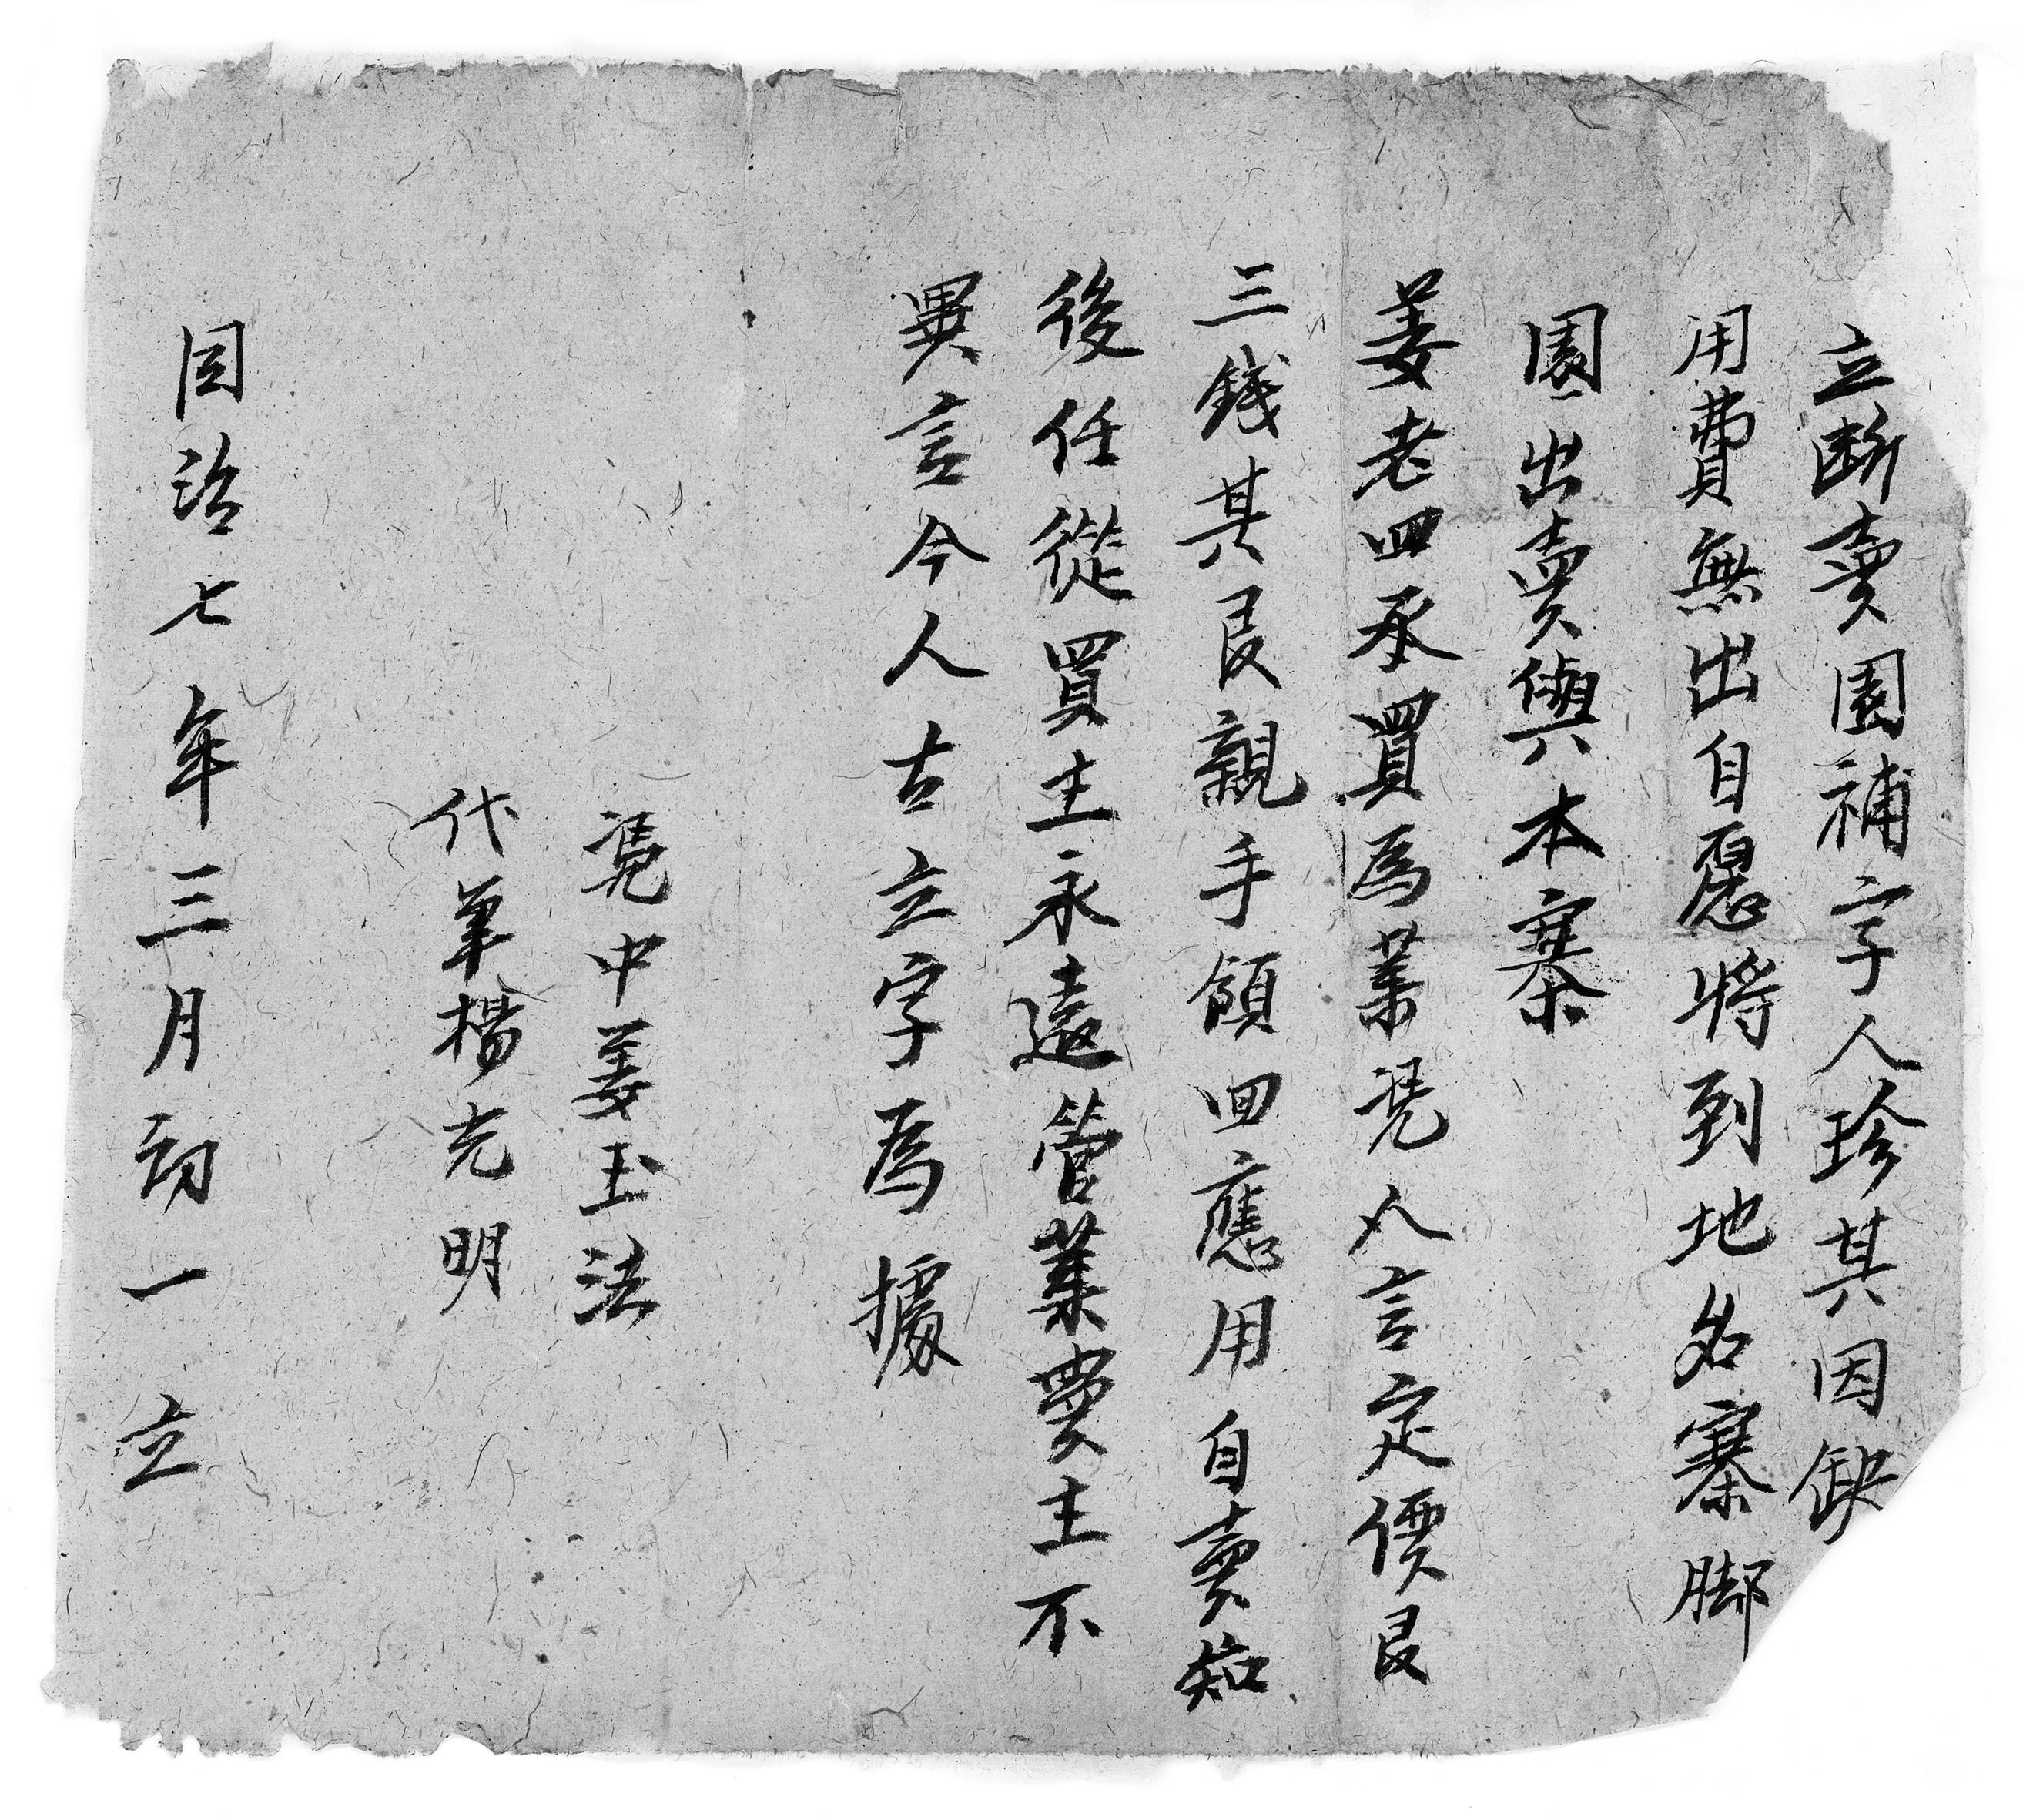 立断賣園補字人珍其因缺
用費無出自愿將到地名寨脚
園出賣與本寨
姜老四承買為業凴人言定價艮
三錢其艮親手領回應用自賣知
後任從買主永遠管業賣主不
異言今人古立字為據
凴中姜玉法
代筆楊克明
同治七年三月初一立